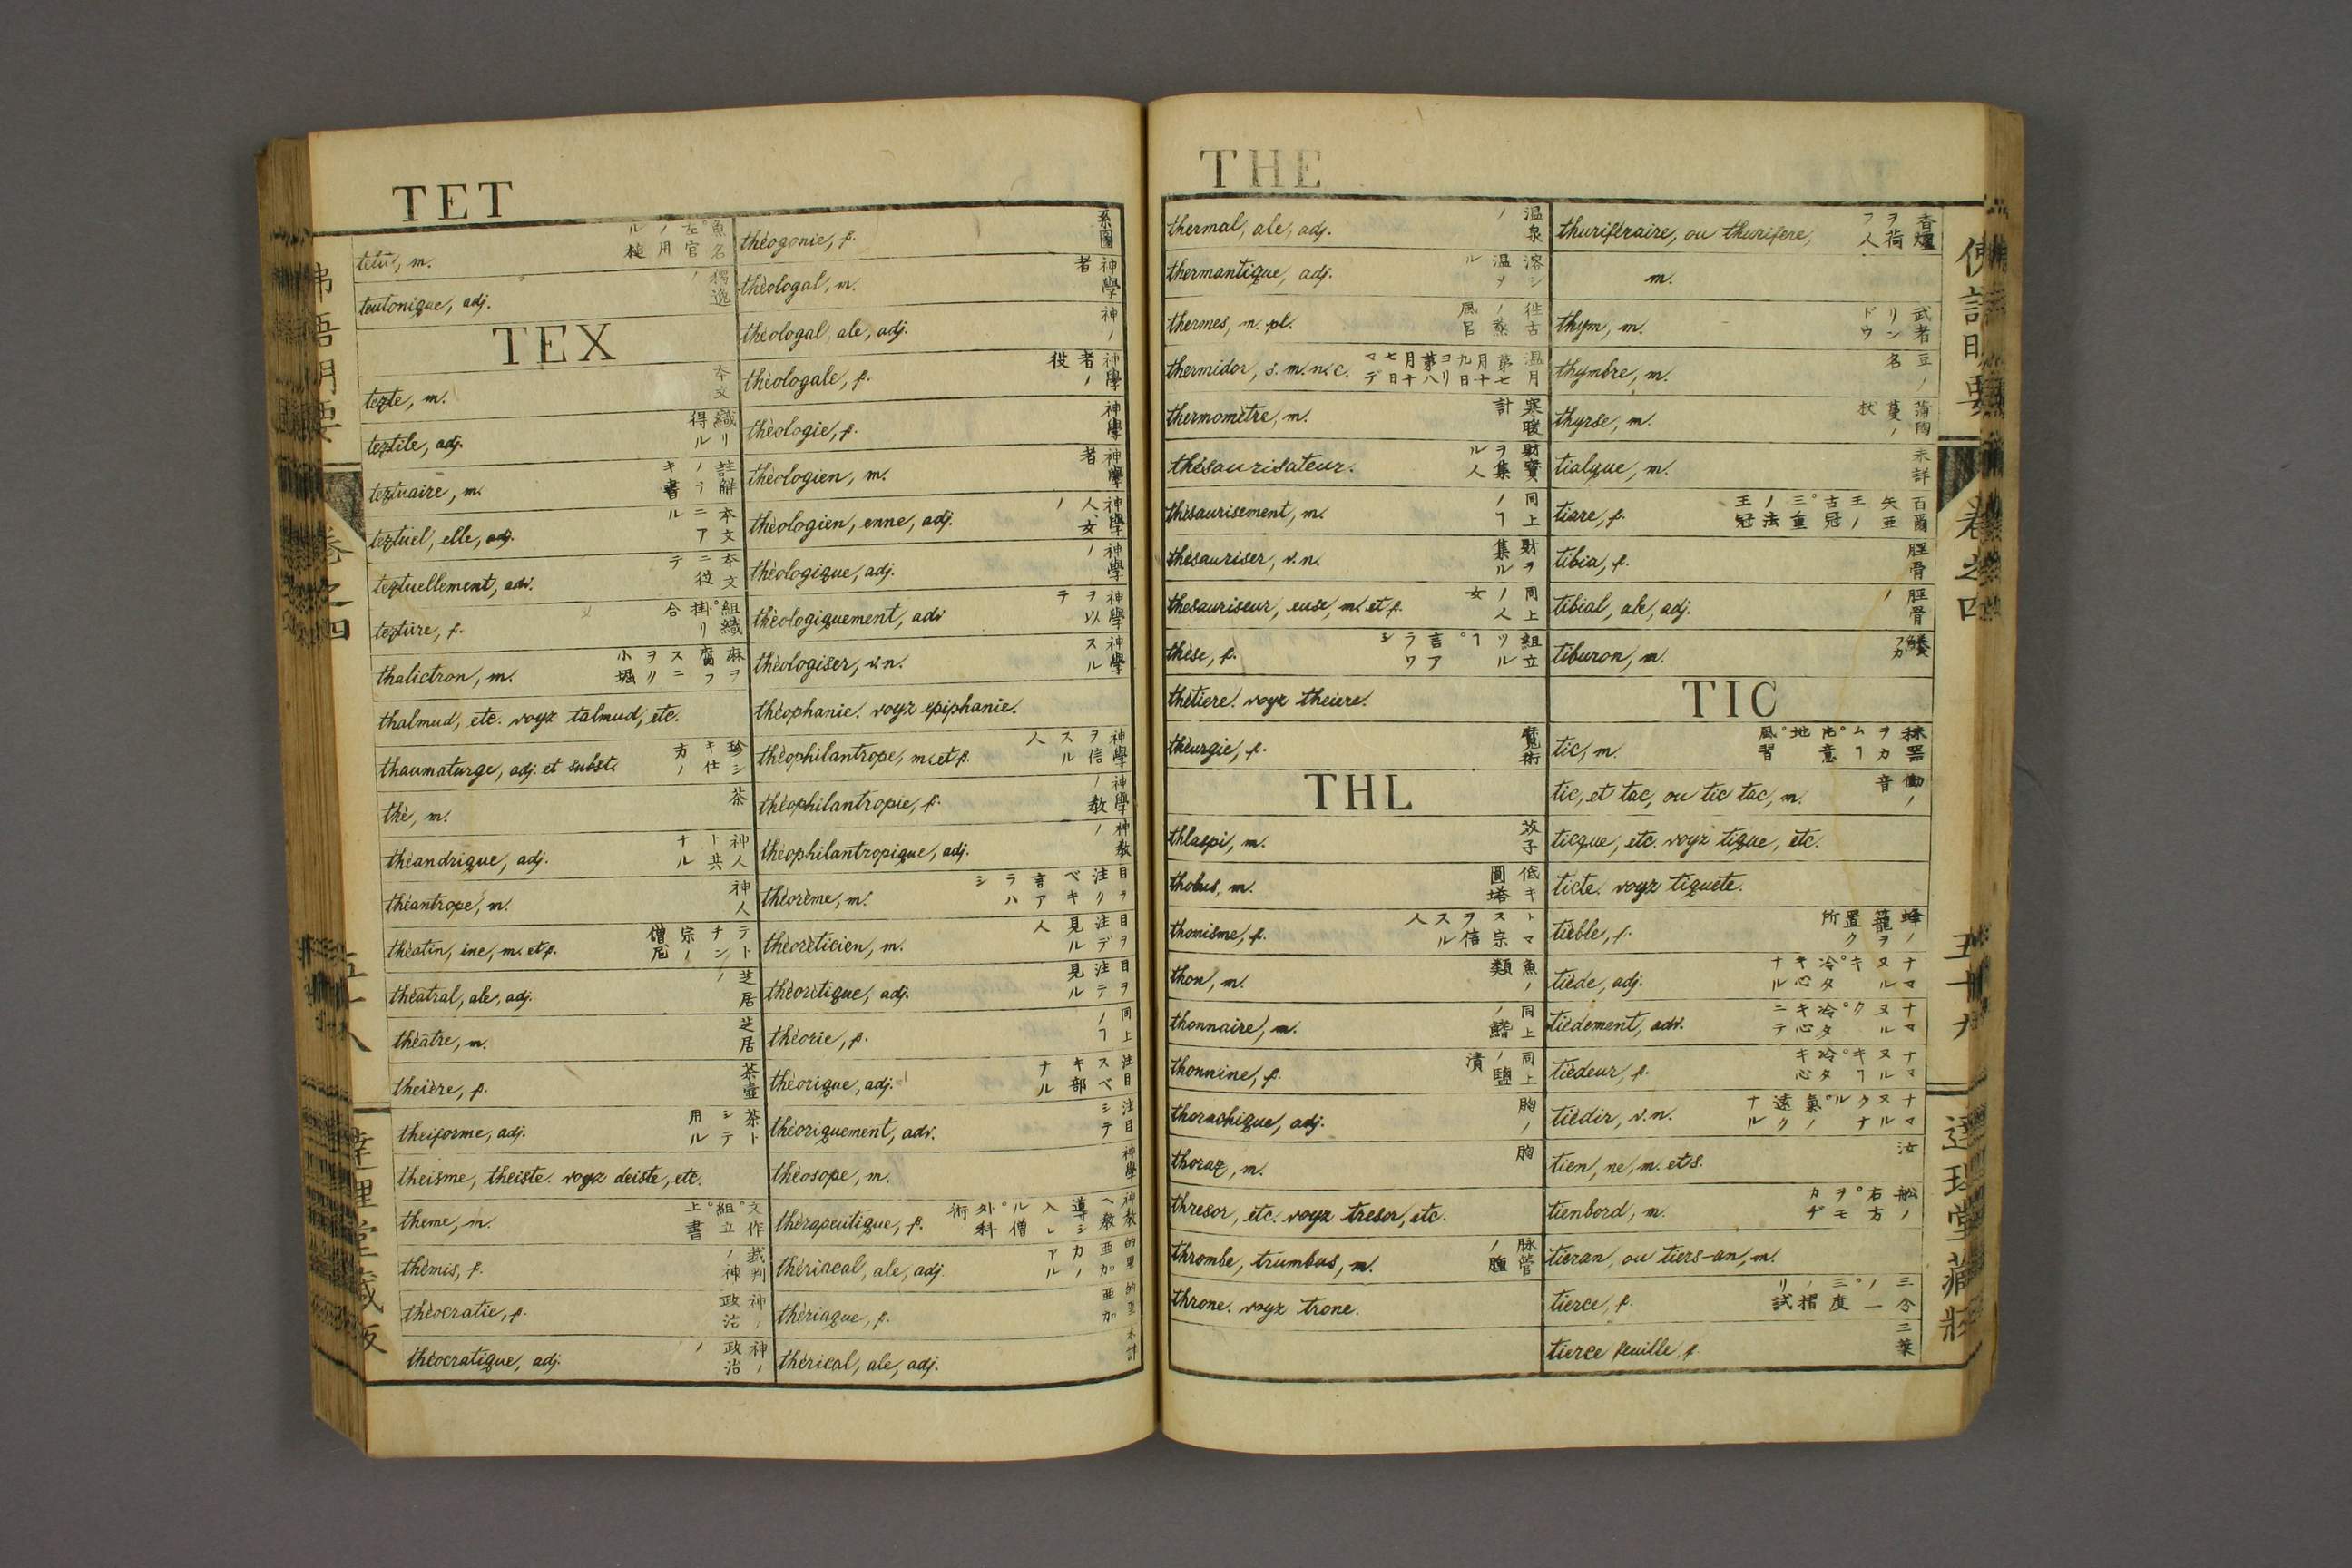 TET
tetu, m. 魚名。左官ノ用ル槌
teutonique, adj. 獨逸ノ
TEX
texte, m. 本文
textile, adj. 織リ得ル
textuaire, m. 註解ノナキ書
textuel, elle, adj. 本文ニアル
textuellement, adv. 本文ニ從テ
texture, f. 組織。掛リ合
thalictron, m.
thalmud, etc. voyz talmud, etc.
thaumaturge, adj. et subst. 珍シキ仕方ノ
thé, m. 茶
théandrique, adj. 神人ト共ナル
théantrope, m. 神人
théatin, ine, m. et f. テトチン宗ノ僧尼
théatral, ale, adj. 芝居ノ
théâtre, m. 芝居
theière, f. 茶壷
theiforme, adj. 茶トシテ用ル
theisme, theiste. voyz deiste, etc.
theme, m. 文作。組立上書
thémis, f. 裁判ノ神
théocratie, f. 神ノ政治
théocratique, adj. 神ノ政治ノ
théogonie, f. 系圖
théologal, m. 神學者
théologal, ale, adj. 神ノ
théologale, f. 神學者ノ役
théologie, f. 神學
théologien, m. 神學者
théologien, enne, adj. 神學人、女ノ
théologique, adj. 神學ノ
théologiquement, adv 神學ヲ以テ
théologiser, v. n. 神學スル
théophanie. voyz epiphanie.
théophilantrope, m. et f. 神學ヲ信スル人
théophilantropie, f. 神學ノ教
théophilantropique, adj. 神教ノ
théorème, m. 目ヲ注クベキ言アラハシ
théoréticien, m. 目ヲ注デ見ル人
théorétique, adj. 目ヲ注テ見ル
théorie, f. 同上ノヿ
théorique, adj. 注目スベキ部ナル
théoriquement, adv. 注目シテ
théosope, m. 神學
thérapeutique, f. 神教ヘ導シ入レル僧。外科術
thériacal, ale, adj. 的里亜加ノカアル
thériaque, f. 的里亜加
thérical, ale, adj. 未詳
THE
thermal, ale, adj. 温泉ノ
thermantique, adj. 溶シ温ヲル
thermes, m. pl. 徃古ノ蒸風呂
thermidor, s. m. n. c. 温月第七月十九日ヨリ第八月十七日マデ
thermomètre, m. 寒暖計
thésaurisateur. 財寶ヲ集ル人
thésaurisement, m. 同上ノヿ
thésauriser, v. n. 財ヲ集ル
thesauriseur, euse, m. et f. 同上ノ人女
thèse, f. 組立ツルヿ。言アラワシ
thétiere. voyz theiere.
théurgie, f. 魔術
THL
thlaspi, m. 芥子
tholus, m. 低キ圓塔
thomisme, f. トマス宗ヲ信スル人
thon, m. 魚ノ類
thonnaire, m. 同上ノ鰭
thonnine, f. 同上ノ鹽漬
thorachique, adj. 胸ノ
thorax, m. 胸
thresor, etc. voyz tresor, etc.
thrombe, trumbus, m. 脉管ノ腫
throne. voyz trone.
thuriféraire, ou thurifere, m. 香爐ヲ荷フ人
thym, m. 武者リンドウ
thymbre, m. 豆ノ名
thyrse, m. 蒲陶蔓ノ杖
tialque, m. 未詳
tiare, f. 百爾矢亜王ノ古冠。三重ノ法王冠
tibia, f. 脛骨
tibial, ale, adj. 脛骨ノ
tiburon, m. 鱶フカ
TIC
tic, m.
tic, et tac, ou tic tac, m. 働ノ音
ticque, etc. voyz tique, etc.
ticte. voyz tiquete.
tièble, f. 蜂ノ籠ヲ置ク所
tiède, adj. ナマヌルキ。冷タキ心ナル
tièdement, adv. ナマヌルク。冷タキ心ニテ
tièdeur, f. ナマヌルキヿ。冷タキ心
tièdir, v. n. ナマヌルクナル。氣ノ遠クナル
tien, ne, m. et s. 汝
tienbord, m. 舩ノ右方。ヲモカヂ
tieran, ou tiers-an, m.
tierce, f. 三分ノ一。三度ノ摺リ試
tierce feuille, f. 三葉
佛語明要
卷之四
五十八
達理堂藏版
佛語明要
卷之四
五十九
達理堂藏版